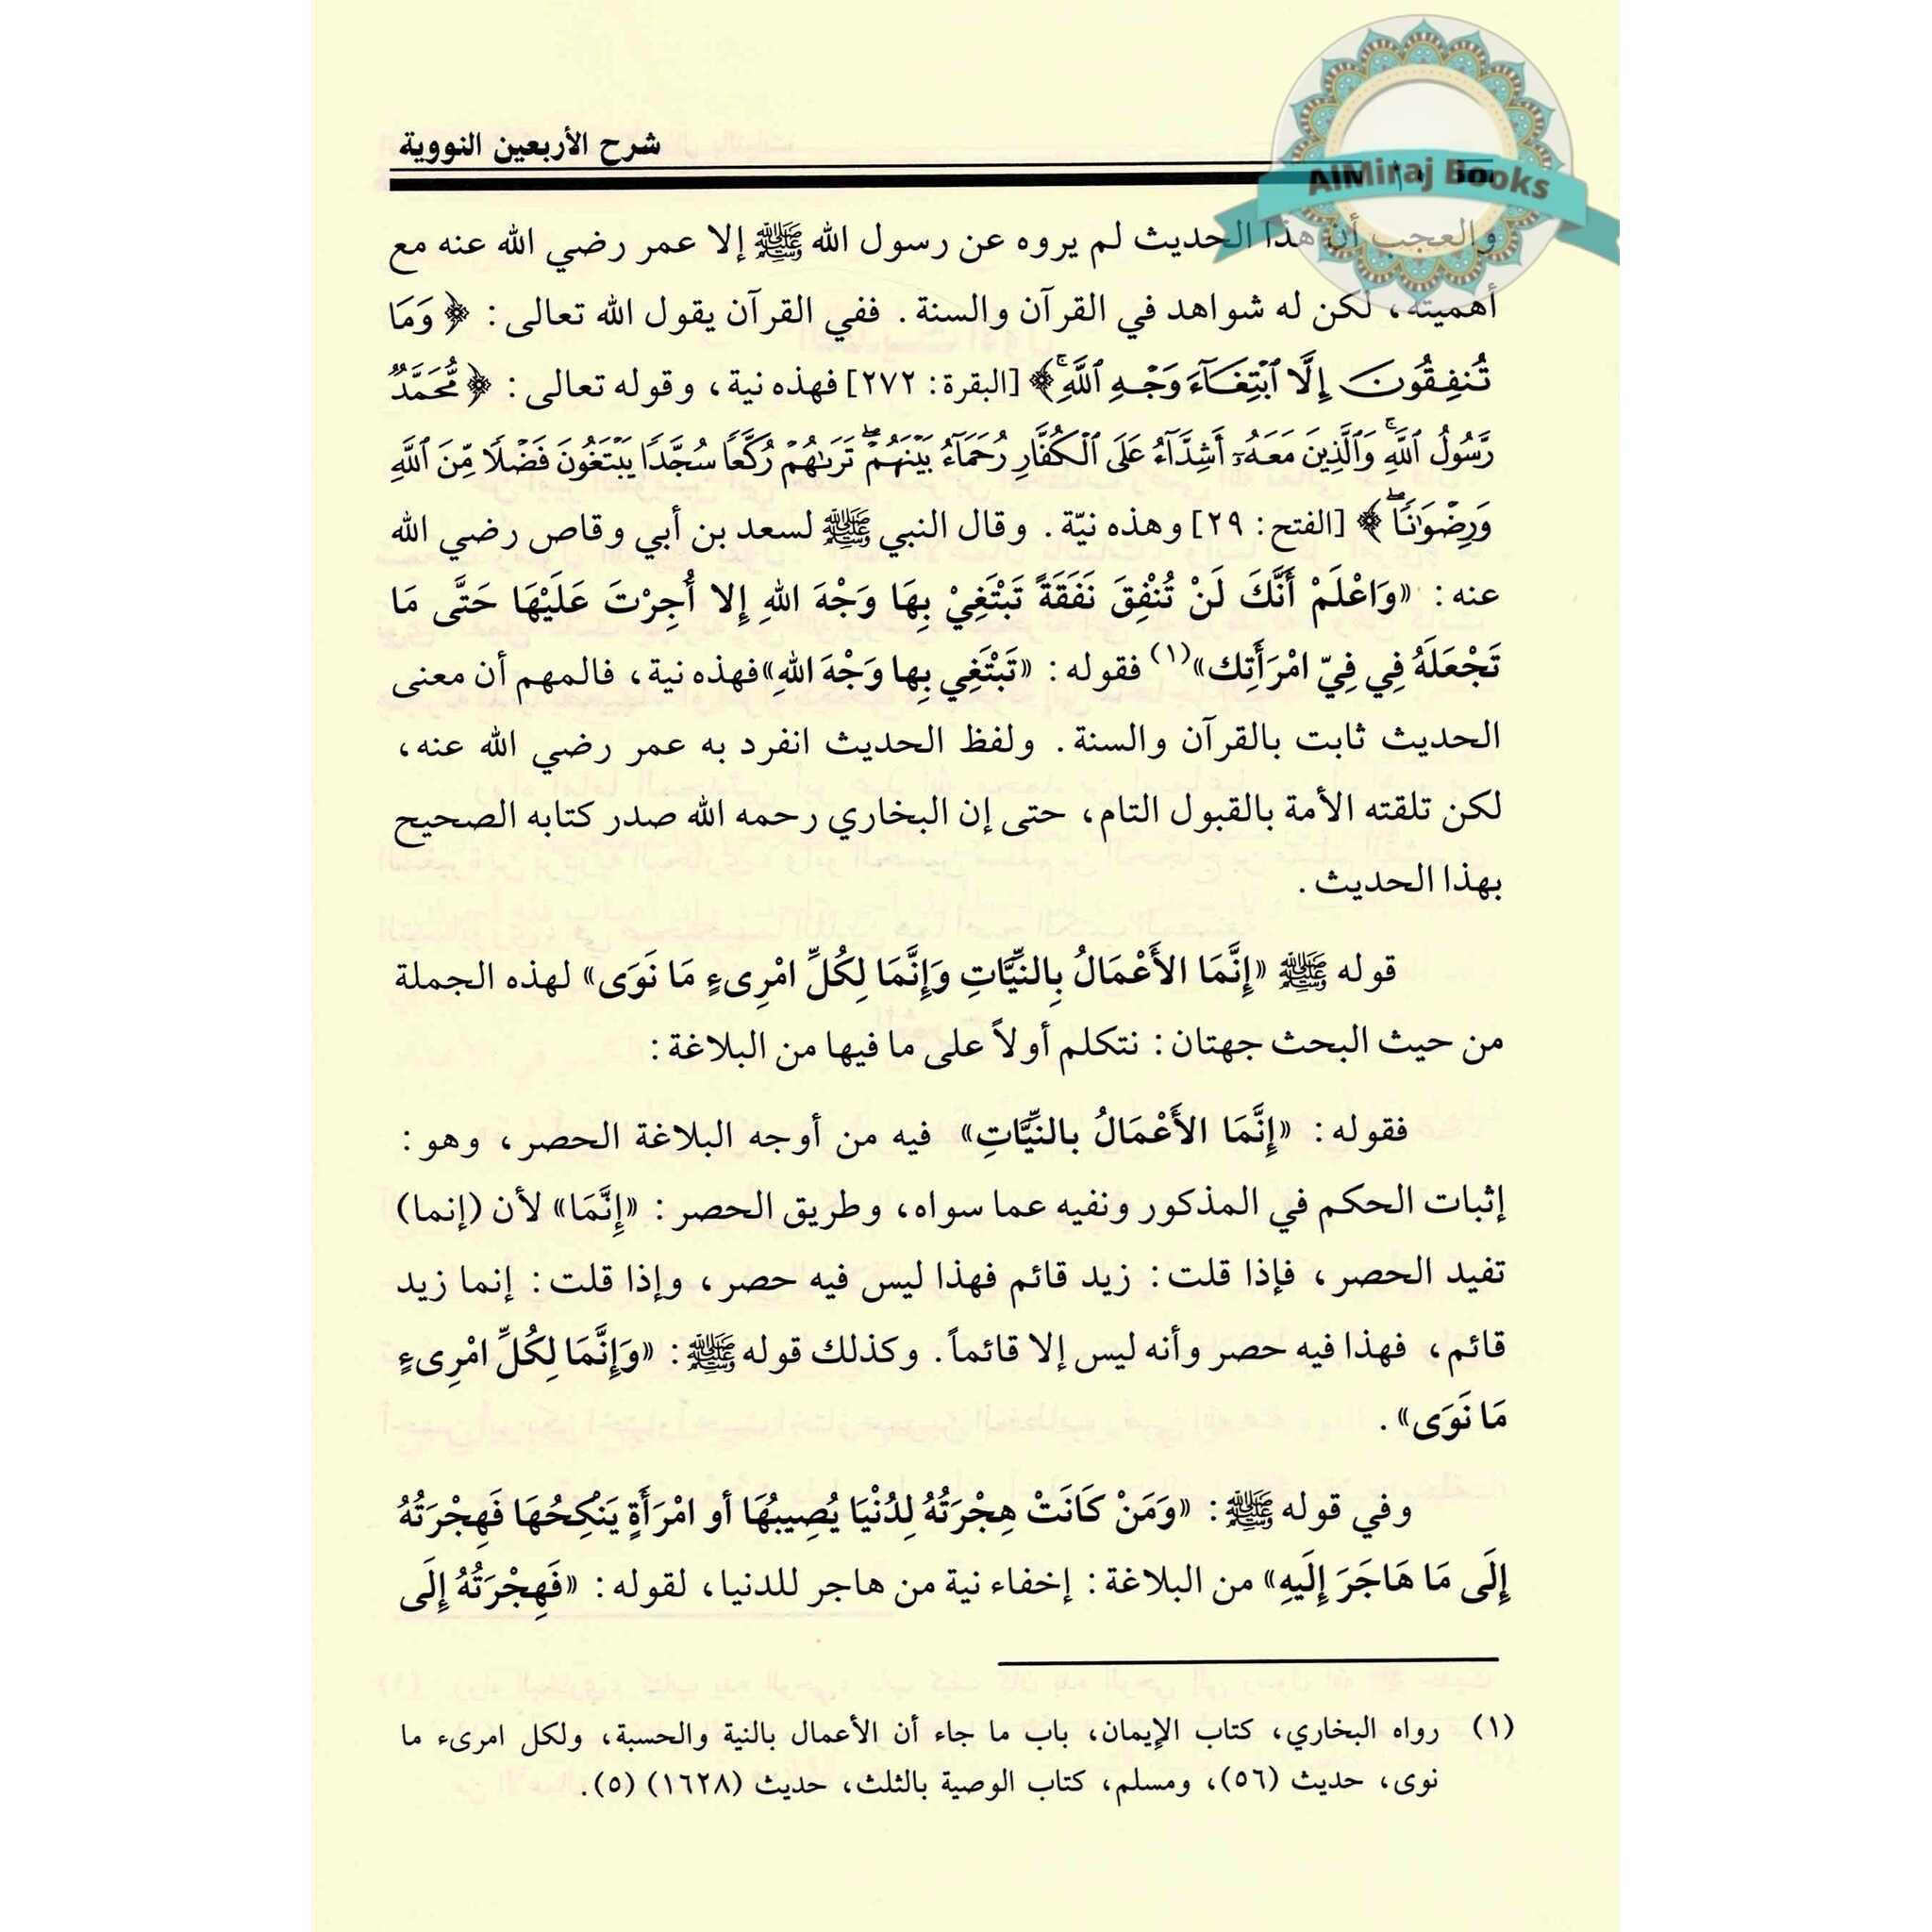 شرح الأربعين النووية
AlMiraj Books
والعجب أن هذا الحديث لم يروه عن رسول الله ﷺ إلا عمر رضي الله عنه مع
أهميته، لكن له شواهد في القرآن والسنة. ففي القرآن يقول الله تعالى: ﴿ وَمَا
تُنفِقُونَ إِلَّا ٱبْتِغَآءَ وَجْهِ ٱللَّهِۚ﴾ [البقرة: ٢٧٢] فهذه نية، وقوله تعالى: ﴿ مُّحَمَّدٌ
رَّسُولُ ٱللَّهِۚ وَٱلَّذِينَ مَعَهُۥٓ أَشِدَّآءُ عَلَى ٱلْكُفَّارِ رُحَمَآءُ بَيْنَهُمْۖ تَرَىٰهُمْ رُكَّعًا سُجَّدًا يَبْتَغُونَ فَضْلًا مِّنَ ٱللَّهِ
وَرِضْوَٰنًاۖ ﴾ [الفتح: ٢٩] وهذه نيّة. وقال النبي ﷺ لسعد بن أبي وقاص رضي الله
عنه: «وَاعْلَمْ أَنَّكَ لَنْ تُنْفِقَ نَفَقَةً تَبْتَغِيْ بِهَا وَجْهَ اللهِ إِلا أُجِرْتَ عَلَيْهَا حَتَّى مَا
تَجْعَلَهُ فِي فِيّ امْرَأَتِك»(١) فقوله: «تَبْتَغِي بِها وَجْهَ اللهِ»فهذه نية، فالمهم أن معنى
الحديث ثابت بالقرآن والسنة. ولفظ الحديث انفرد به عمر رضي الله عنه،
لكن تلقته الأمة بالقبول التام، حتى إن البخاري رحمه الله صدر كتابه الصحيح
بهذا الحديث.
قوله ﷺ «إِنَّمَا الأَعْمَالُ بِالنيَّاتِ وَإِنَّمَا لِكُلِّ امْرِىءٍ مَا نَوَى» لهذه الجملة
من حيث البحث جهتان: نتكلم أولاً على ما فيها من البلاغة:
فقوله: «إِنَّمَا الأَعْمَالُ بالنيَّاتِ» فيه من أوجه البلاغة الحصر، وهو:
إثبات الحكم في المذكور ونفيه عما سواه، وطريق الحصر: «إِنَّمَا» لأن (إنما)
تفيد الحصر، فإذا قلت: زيد قائم فهذا ليس فيه حصر، وإذا قلت: إنما زيد
قائم، فهذا فيه حصر وأنه ليس إلا قائماً. وكذلك قوله ﷺ: «وَإِنَّمَا لِكُلِّ امْرِىءٍ
مَا نَوَى».
وفي قوله ﷺ: «وَمَنْ كَانَتْ هِجْرَتُهُ لِدُنْيَا يُصِيبُهَا أو امْرَأَةٍ يَنْكِحُهَا فَهِجْرَتُهُ
إِلَى مَا هَاجَرَ إِلَيهِ» من البلاغة: إخفاء نية من هاجر للدنيا، لقوله: «فَهِجْرَتُهُ إِلَى
(١) رواه البخاري، كتاب الإيمان، باب ما جاء أن الأعمال بالنية والحسبة، ولكل امرىء ما
نوى، حديث (٥٦)، ومسلم، كتاب الوصية بالثلث، حديث (١٦٢٨) (٥).